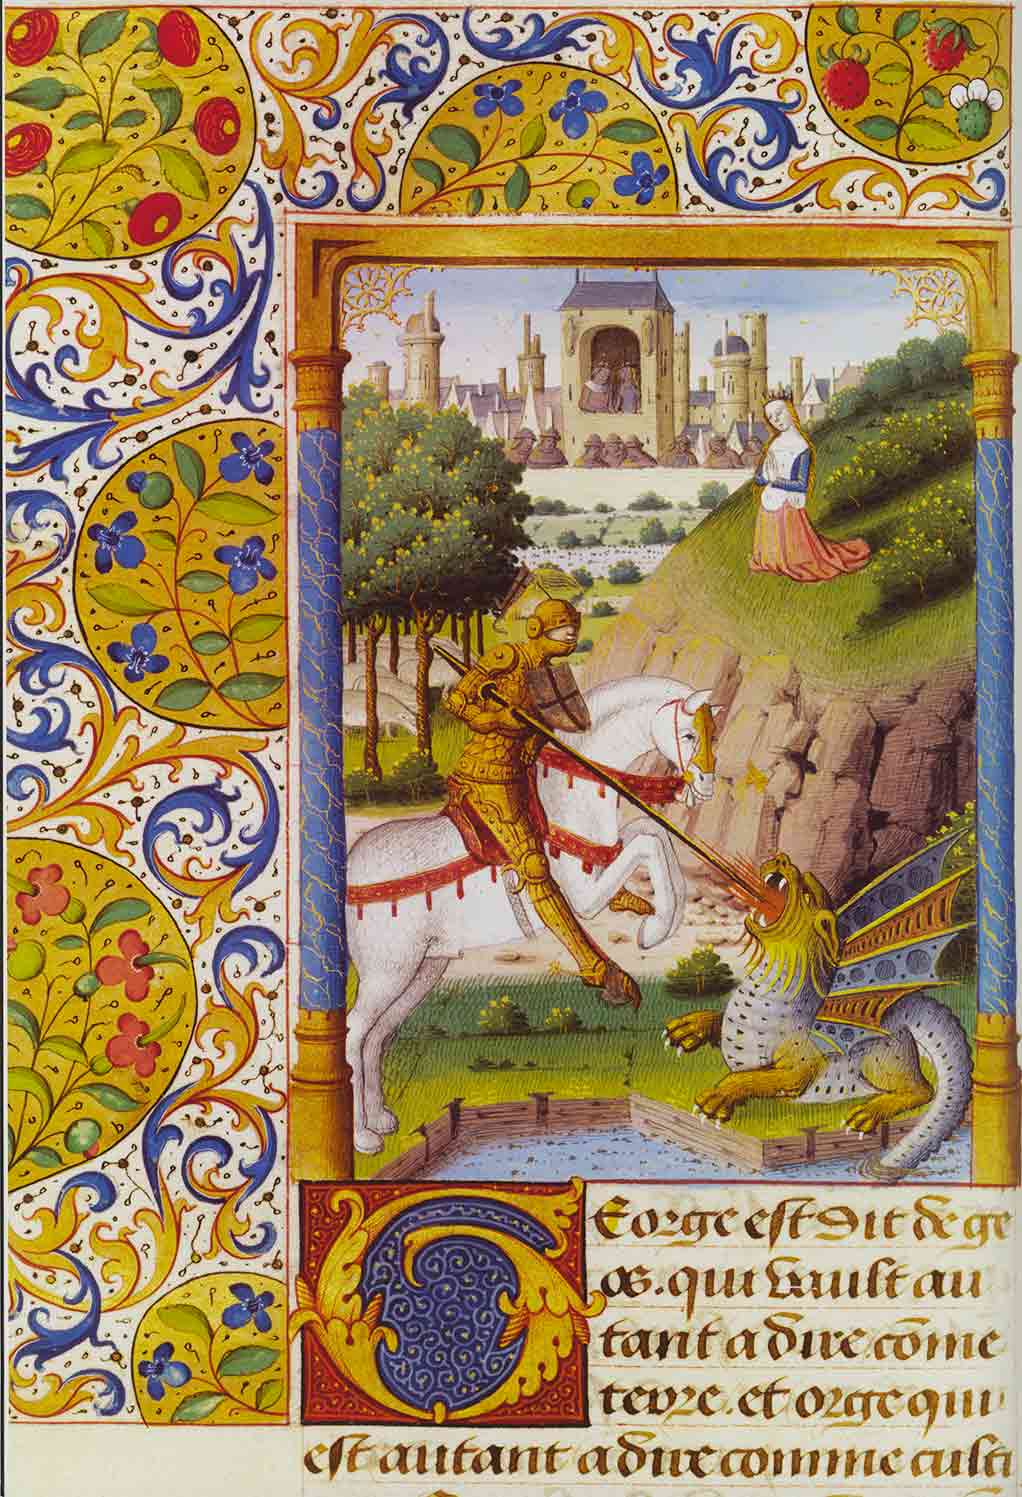 George est dit de ge
os. qui vault au
tant a dire cōme
terre. et orge qui
est autant a dire comme culti